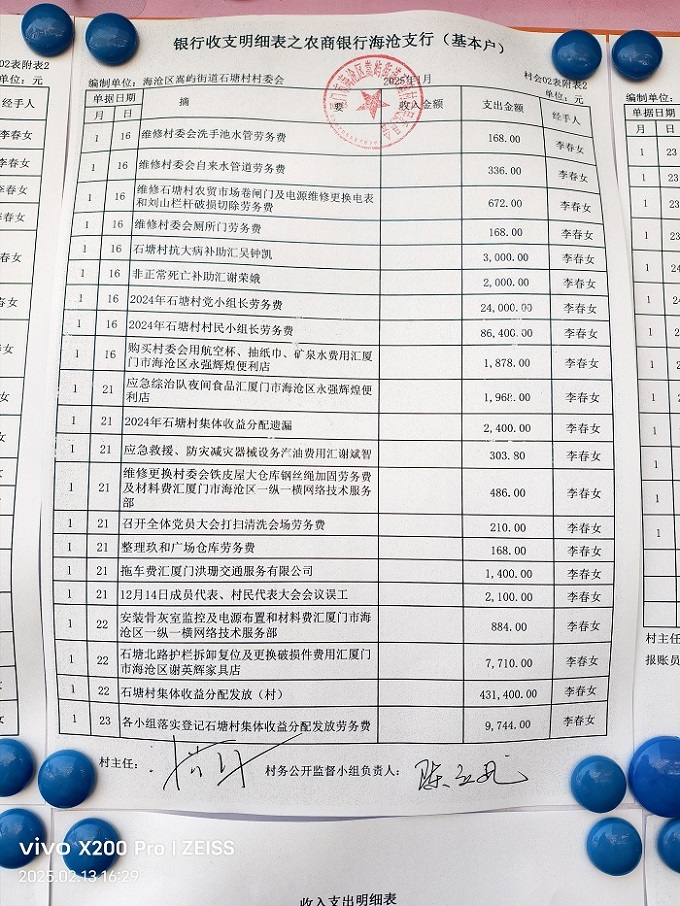 银行收支明细表之农商银行海沧支行（基本户）
村会02表附表2
编制单位：海沧区嵩屿街道石塘村村委会 2025年1月 单位：元
单据日期 摘 要 收入金额 支出金额 经手人
月 日
1 16 维修村委会洗手池水管劳务费 168.00 李春女
1 16 维修村委会自来水管道劳务费 336.00 李春女
1 16 维修石塘村农贸市场卷闸门及电源维修更换电表
和刘山栏杆破损切除劳务费 672.00 李春女
1 16 维修村委会厕所门劳务费 168.00 李春女
1 16 石塘村抗大病补助汇吴钟凯 3,000.00 李春女
1 16 非正常死亡补助汇谢荣娥 2,000.00 李春女
1 16 2024年石塘村党小组长劳务费 24,000.00 李春女
1 16 2024年石塘村村民小组长劳务费 86,400.00 李春女
1 16 购买村委会用航空杯、抽纸巾、矿泉水费用汇厦
门市海沧区永强辉煌便利店 1,878.00 李春女
1 21 应急综治队夜间食品汇厦门市海沧区永强辉煌便
利店 1,968.00 李春女
1 21 2024年石塘村集体收益分配遗漏 2,400.00 李春女
1 21 应急救援、防灾减灾器械设备汽油费用汇谢斌智 303.80 李春女
1 21 维修更换村委会铁皮屋大仓库钢丝绳加固劳务费
及材料费汇厦门市海沧区一纵一横网络技术服务
部 486.00 李春女
1 21 召开全体党员大会打扫清洗会场劳务费 210.00 李春女
1 21 整理玖和广场仓库劳务费 168.00 李春女
1 21 拖车费汇厦门洪珊交通服务有限公司 1,400.00 李春女
1 21 12月14日成员代表、村民代表大会会议误工 2,100.00 李春女
1 22 安装骨灰室监控及电源布置和材料费汇厦门市海
沧区一纵一横网络技术服务部 884.00 李春女
1 22 石塘北路护栏拆卸复位及更换破损件费用汇厦门
市海沧区谢英辉家具店 7,710.00 李春女
1 22 石塘村集体收益分配发放（村） 431,400.00 李春女
1 23 各小组落实登记石塘村集体收益分配发放劳务费 9,744.00 李春女
村主任： 村务公开监督小组负责人：
02表附表2
：元
经手人
李春女
李春女
李春女
李春女
编制单位：
单据日期
月 日
1 23
1 23
村主任
报账员
收入支出明细表
vivo X200 Pro | ZEISS
2025.02.13 16:29